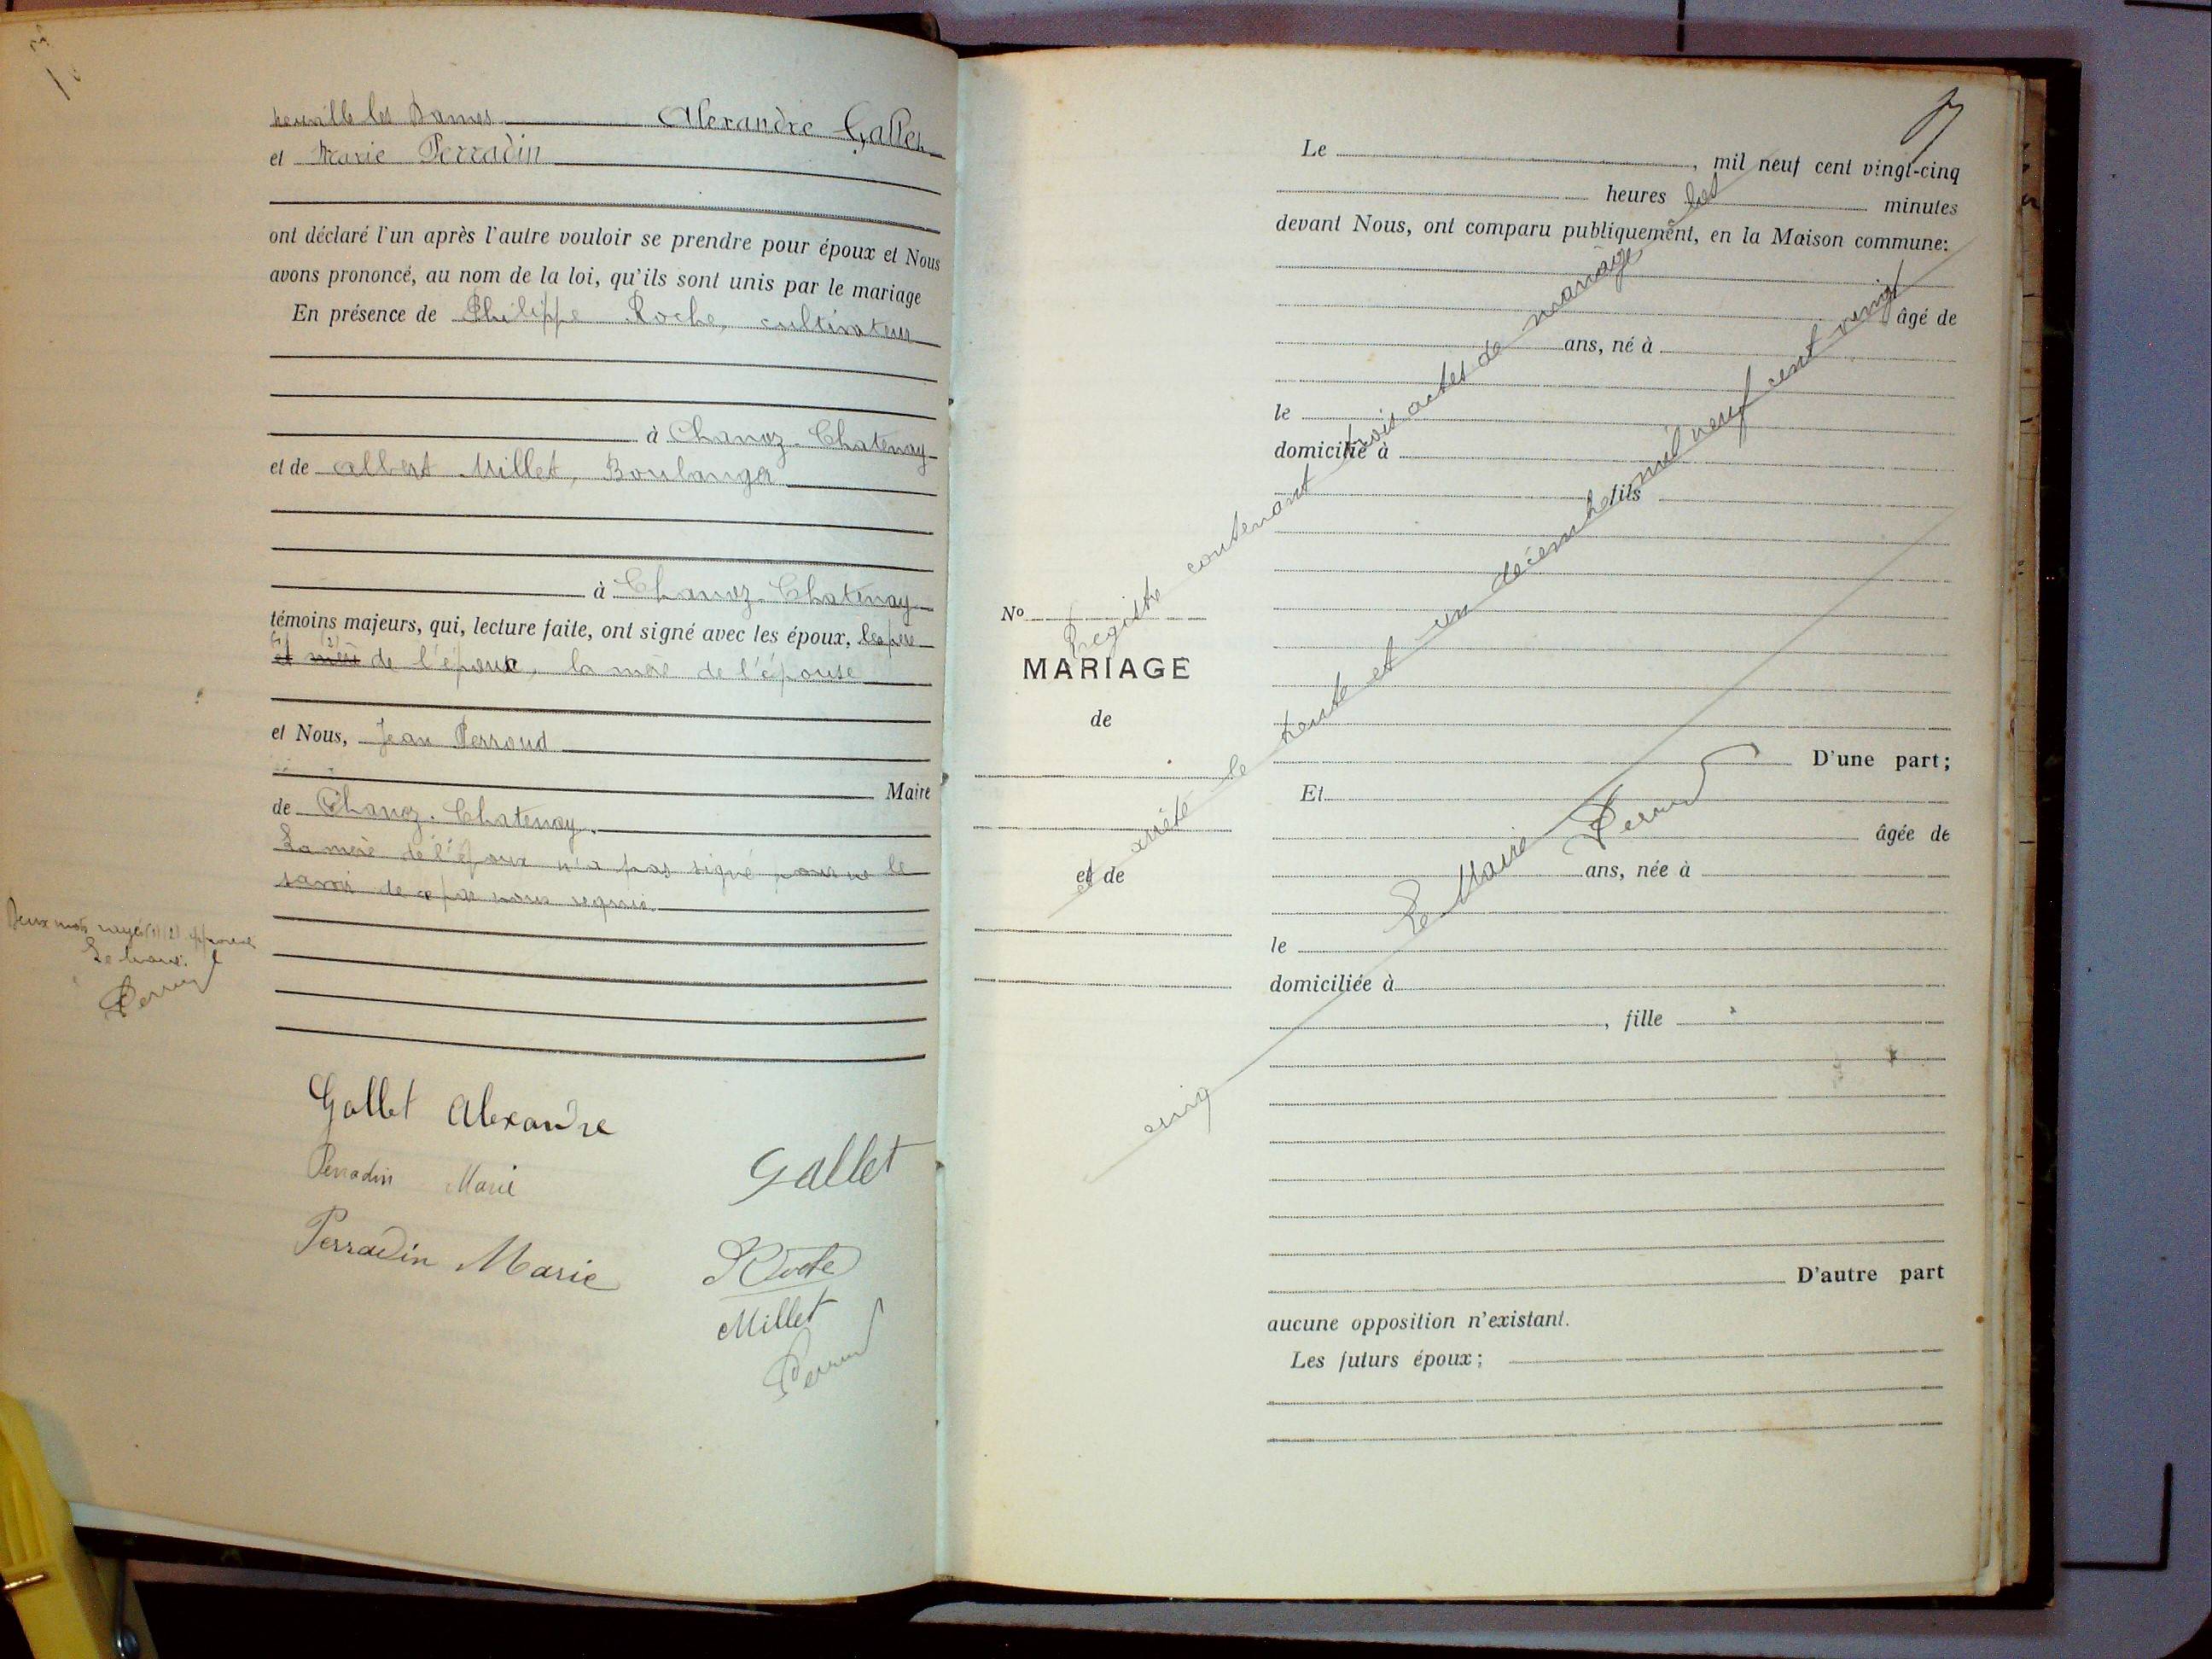 neuville les Dames Alexandre Gallet
et Marie Perradin
ont déclaré l'un après l'autre vouloir se prendre pour époux et Nous
avons prononcé, au nom de la loi, qu'ils sont unis par le mariage
En présence de Philippe Roche, cultivateur
à Chanoz-Chatenay
et de Albert Millet, Boulanger
à Chanoz-Chatenay
témoins majeurs, qui, lecture faite, ont signé avec les époux, les père
(1) (2)
et mère de l'époux, la mère de l'épouse
et Nous, Jean Perroud
Maire
de Chanoz-Chatenay.
La mère de l'époux n'a pas signé pour ne le
savoir de ce par nous requise.
Deux mots rayés (1) (2) approuvés
Le maire.
Perroud
Gallet Alexandre
Perradin Marie
Gallet
Perradin Marie
Roche
Millet
Perroud
Le , mil neuf cent vingt-cinq
heures minutes
devant Nous, ont comparu publiquement, en la Maison commune:
âgé de
ans, né à
le
domicilié à
fils
No
MARIAGE
de
et de
D'une part;
Et
âgée de
ans, née à
le
domiciliée à
, fille
D'autre part
aucune opposition n'existant.
Les futurs époux;
Registre contenant trois actes de mariage
et arrêté le trente et un décembre mil neuf cent vingt
cinq
Le Maire
Perroud